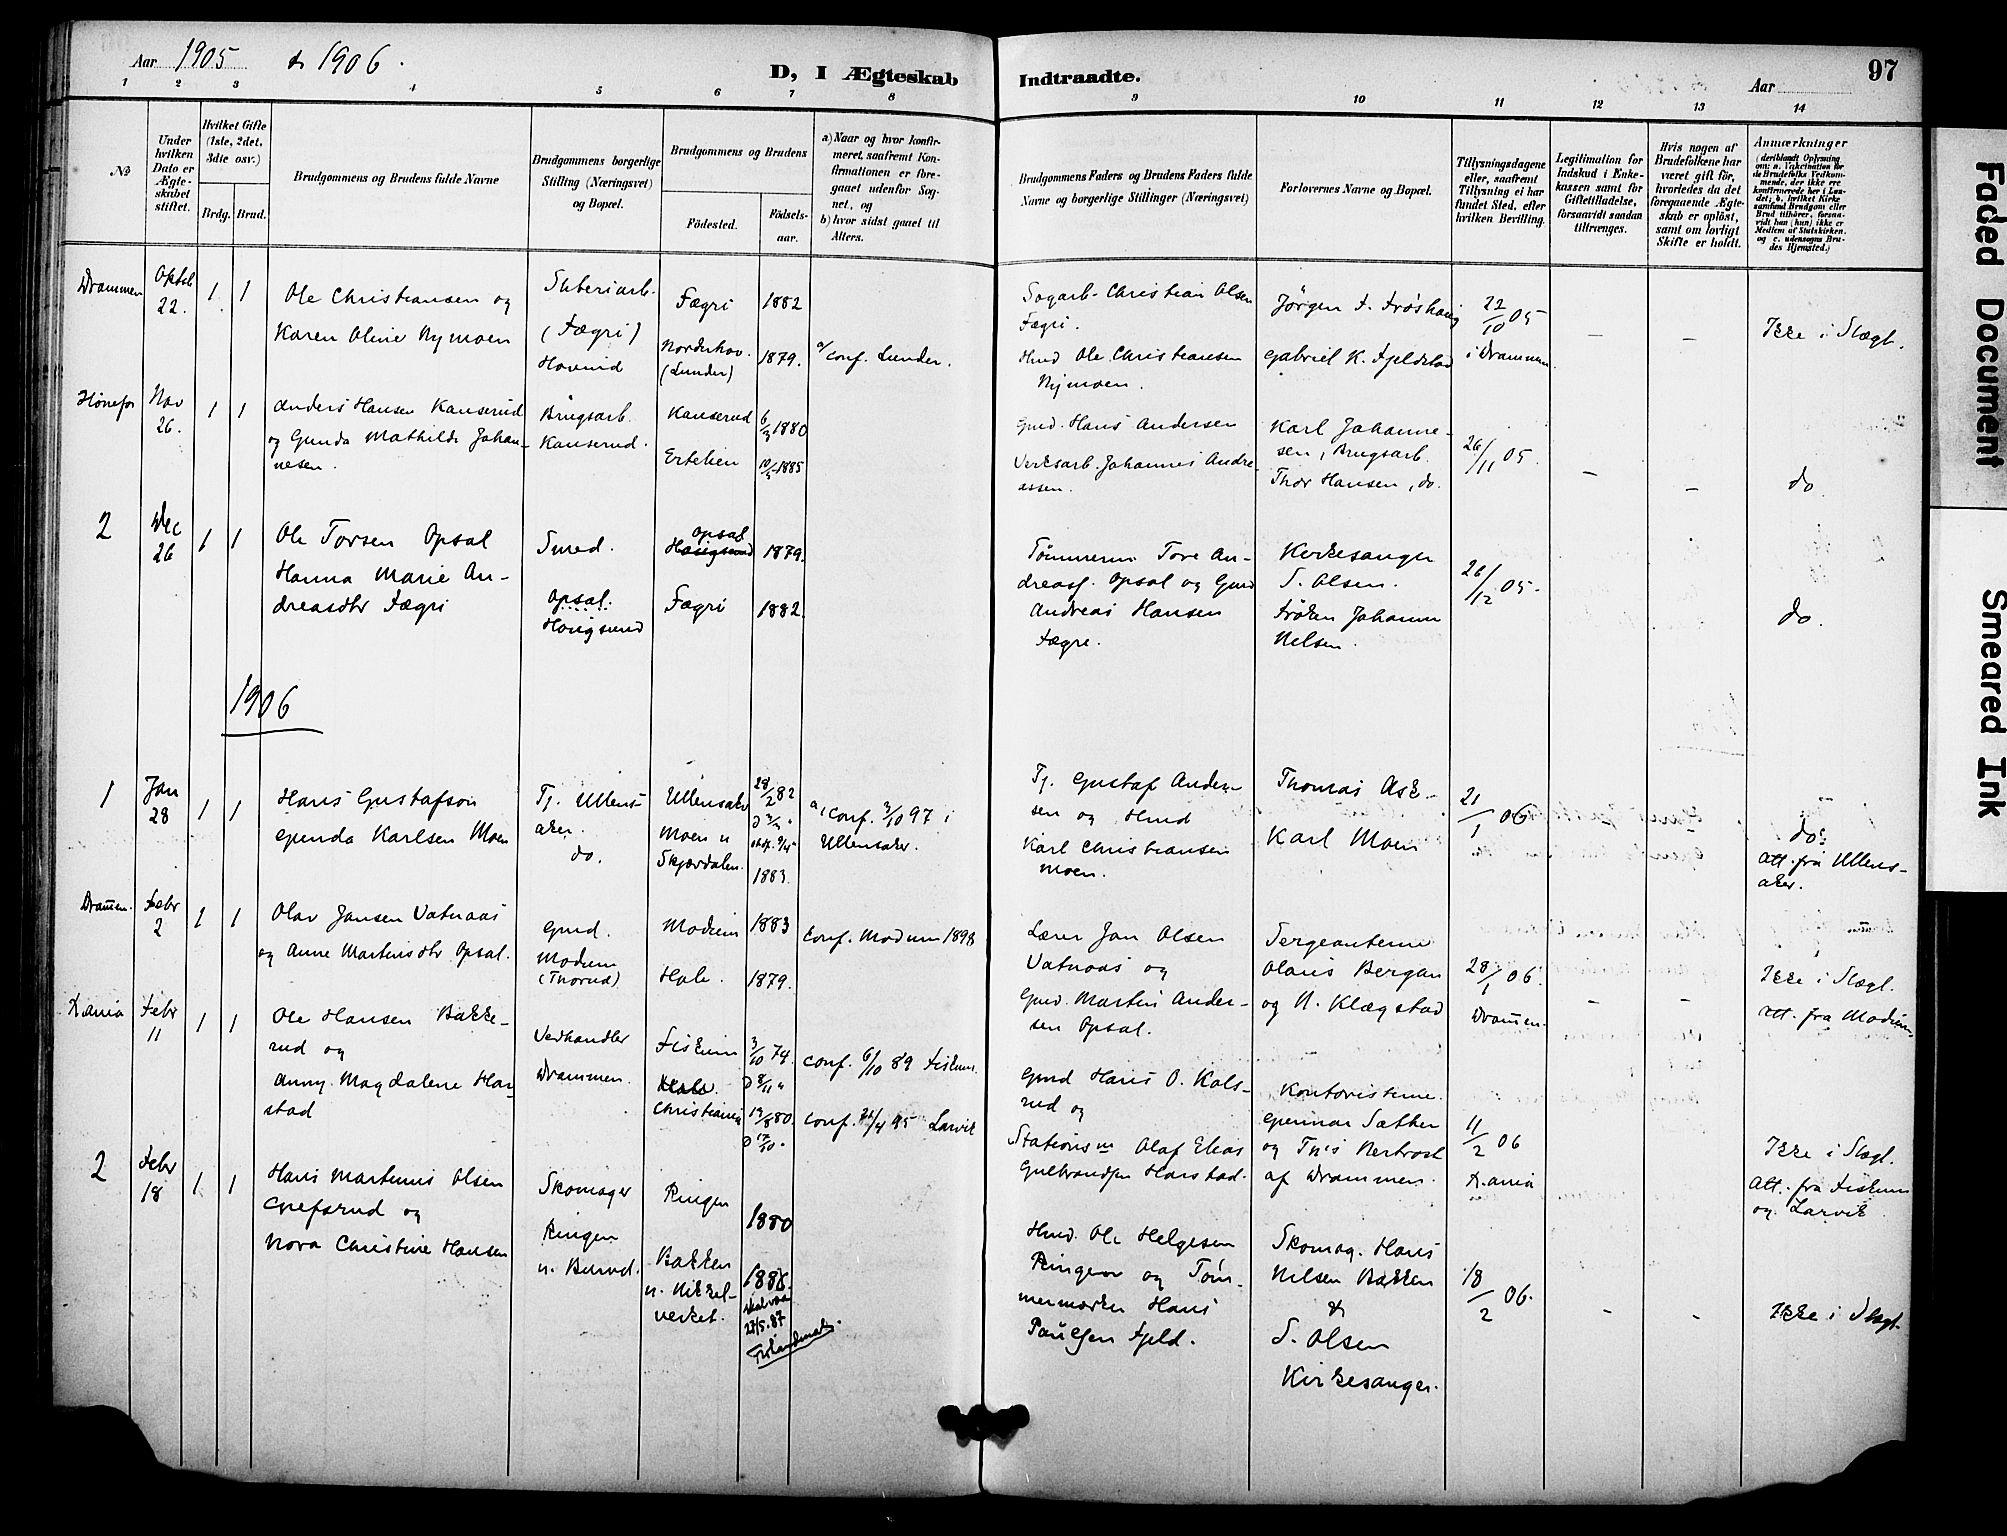 Aar 1905 & 1906.
D, I Ægteskab Indtraadte.
Aar
97
1 2 3 4 5 6 7 8 9 10 11 12 13 14
№
Under hvilken Dato er Ægteskabet stiftet.
Hvilket Gifte (1ste, 2det, 3die osv.)
Brdg. Brud.
Brudgommens og Brudens fulde Navne
Brudgommens borgerlige Stilling (Næringsvei) og Bopæl.
Brudgommens og Brudens
Fødested.
Fødselsaar.
a) Naar og hvor konfirmeret, saafremt Konfirmationen er foregaaet udenfor Sognet, og
b) hvor sidst gaaet til Alters.
Brudgommens Faders og Brudens Faders fulde Navne og borgerlige Stillinger (Næringsvei)
Forlovernes Navne og Bopæl.
Tillysningsdagene eller, saafremt Tillysning ei har fundet Sted, efter hvilken Bevilling.
Legitimation for Indskud i Enkekassen samt for Giftetilladelse, forsaavidt saadan tiltrænges.
Hvis nogen af Brudefolkene har været gift før, hvorledes da det foregaaende Ægteskab er opløst, samt om lovligt Skifte er holdt.
Anmærkninger
(deriblandt Oplysning om: a. Vakcination for de Brudefolks Vedkommende, der ikke ere konfirmerede her i Landet; b. hvilket Kirkesamfund Brudgom eller Brud tilhører, forsaavidt han (hun) ikke er Medlem af Statskirken, og c. udensogns Brudes Hjemsted.)
Drammen
22.
1 1
Ole Christiansen og
Karen Oline Nymoen
Sliberiarb.
(Fægri)
Hovind
Fægri
Norderhov.
(Lunder)
1882
1879.
a/ conf. Lunder.
Sagarb. Christian Olsen
Fægri.
Hmd Ole Christiansen
Nymoen.
Jörgen F. Fröshaug
Gabriel K. Fjeldstad
22/10 05
i Drammen
Ikke i Slægt.
Hönefos
Nov
26.
1 1
Anders Hansen Kanserud
og Gunda Mathilde Johannesen.
Brugsarb.
Kanserud.
Kanserud
Ertelien
6/3 1880
1885
Gmd. Hans Andersen
Verksarb. Johannes Andreassen.
Karl Johannesen, Brugsarb.
Thor Hansen, do.
26/11 05.
do.
2
Dec
26
1 1
Ole Torsen Opsal
Hanna Marie Andreasdtr Fægri
Smed.
Opsal.
Hougsund
Opsal
Hougsund
Fægri
1879.
1882.
Tömmerm. Tore Andreass. Opsal og Gmd
Andreas Hansen
Fægre.
Kirkesanger
S. Olsen.
Fröken Johanne
Nelsen.
26/12 05.
do.
1906
1
Jan
28
1 1
Hans Gustafson
Gunda Karlsen Moen
Tj. Ullensaker.
do.
Ullensaker
Moen u
Skjærdalen.
28/2 82
1883.
a, conf. 3/10 97 i
Ullensaker.
Tj. Gustaf Andersen og Hmd
Karl Christiansen
Moen.
Thomas Ask
Karl Moen
21/1 06
do:
Att. fra Ullensaker.
Dramen.
Febr
2
1 1
Olav Jansen Vatnaas
og Anne Martinsdtr Opsal.
Gmd.
Modum
(Thorud)
Modum
Hole.
1883
1879.
conf. Modum 1898
Lærer Jan Olsen
Vatnaas og
Gmd. Martin Andersen Opsal.
Sergeanterne
Olaus Bergan
og N. Klægstad
28/1 06.
Dramen.
Ikke i Slægt.
Att. fra Modum
Xania
Febr
11
1 1
Ole Hansen Bakkerud og
Anny. Magdalene Harstad
Vedhandler
Drammen.
Fiskum
Christiania
3/10 74.
D 8/11 "
19/8 80.
D 17/10 "
conf. 6/10 89 Fiskum.
conf. 21/4 95 Larvik
Gmd Hans O. Kolsrud og
Stationsm Olaf Elias
Gulbrandsen Harstad.
Kontoristerne
Gunnar Sæther
af Drammen.
11/2 06
Xania
Ikke i Slægt.
Att. fra Fiskum
og Larvik
2
Febr
18
1 1
Hans Martinius Olsen
Grefsrud og
Nora Christine Hansen
Skomager
Ringen
u. Burud.
Ringen
Bakken
u. Nikkelverket.
1880
1888.
skal være
27/5. 87
Hmd. Ole Helgesen
Ringen og Tömmermerker Hans
Paulsen Fjeld.
Skomag. Hans
Nilsen Bakken
&
S. Olsen
Kirkesanger.
18/2 06.
Ikke i Slægt.
Faded Document
Smeared Ink